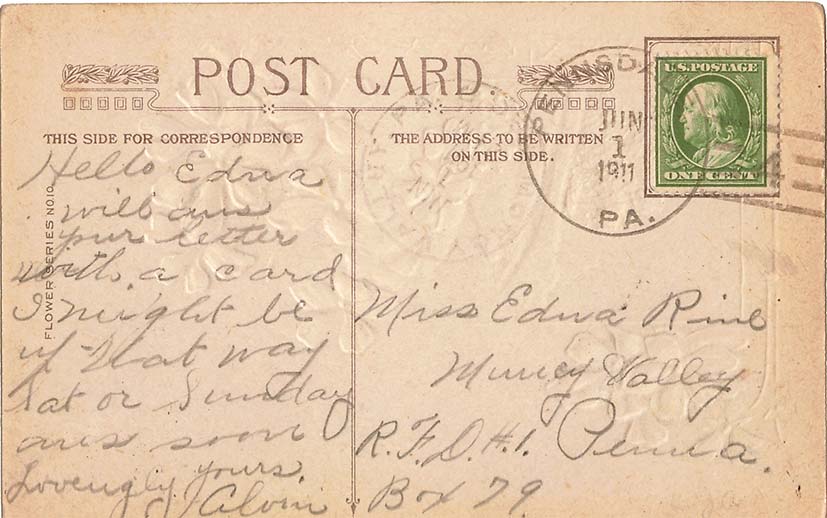 POST CARD
THIS SIDE FOR CORRESPONDENCE
THE ADDRESS TO BE WRITTEN
ON THIS SIDE.
FLOWER SERIES NO.10
U.S. POSTAGE
ONE CENT
PENNSDALE
JUN
1
1911
PA.
Hello Edna
will ans
your letter
with a card
I might be
up that way
Sat or Sunday
ans soon
Lovengly yours.
Alvin
Miss Edna Rine
Muncy Valley
R.F.D.#1. Penna.
Box 79